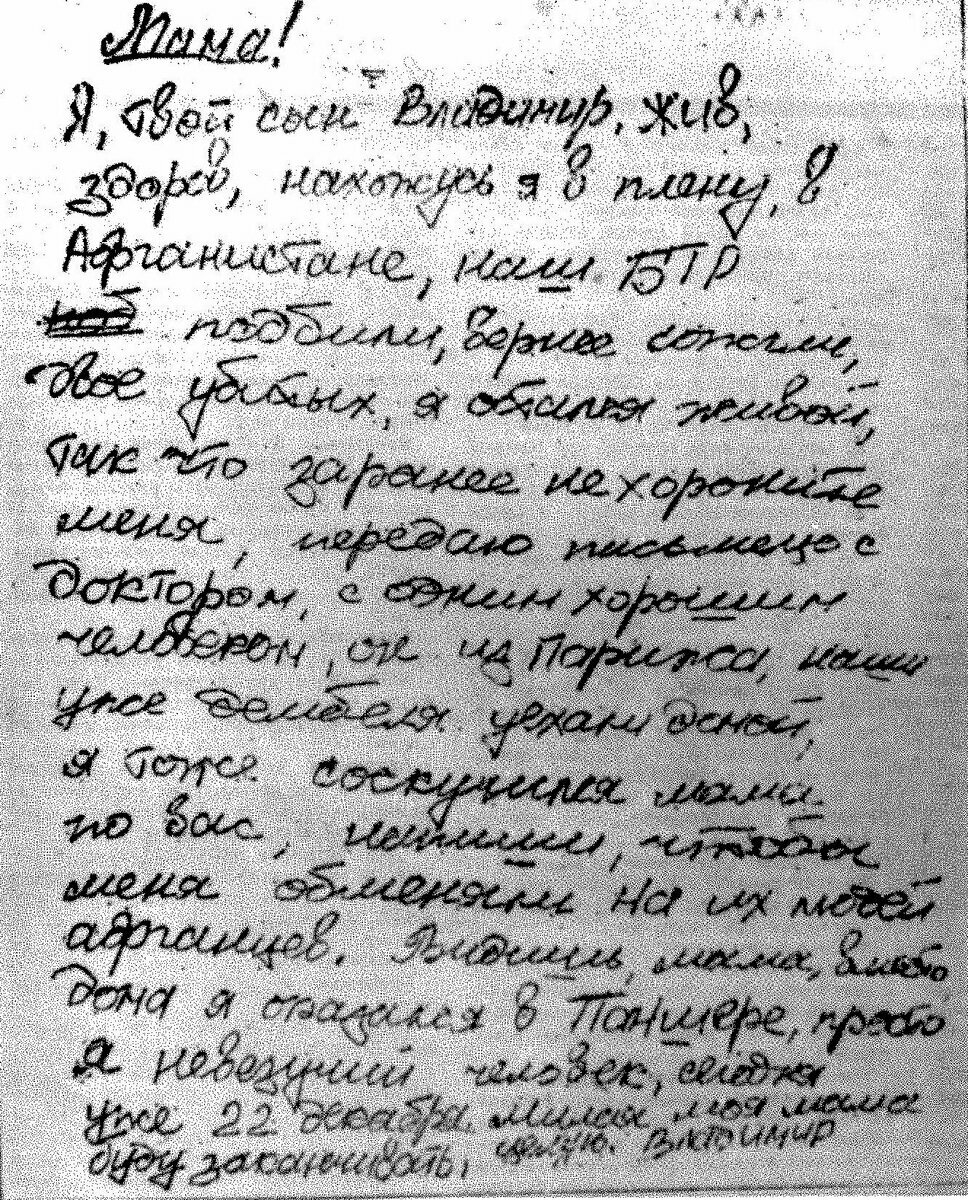 Мама!
Я, твой сын Владимир, жив,
здоров, нахожусь я в плену, в
Афганистане, наш БТР
подбили, вернее сожгли,
двое убитых, я остался живой,
так что заранее не хороните
меня, передаю письмецо с
доктором, с одним хорошим
человеком, он из Парижа, наши
уже дембеля уехали домой,
я тоже соскучился мама
по вас, напиши, чтобы
меня обменяли на их людей
афганцев. Видишь, мама, вместо
дома я оказался в Паншере, просто
я невезучий человек, сегодня
уже 22 декабря. Милая моя мама
буду заканчивать, целую. Владимир